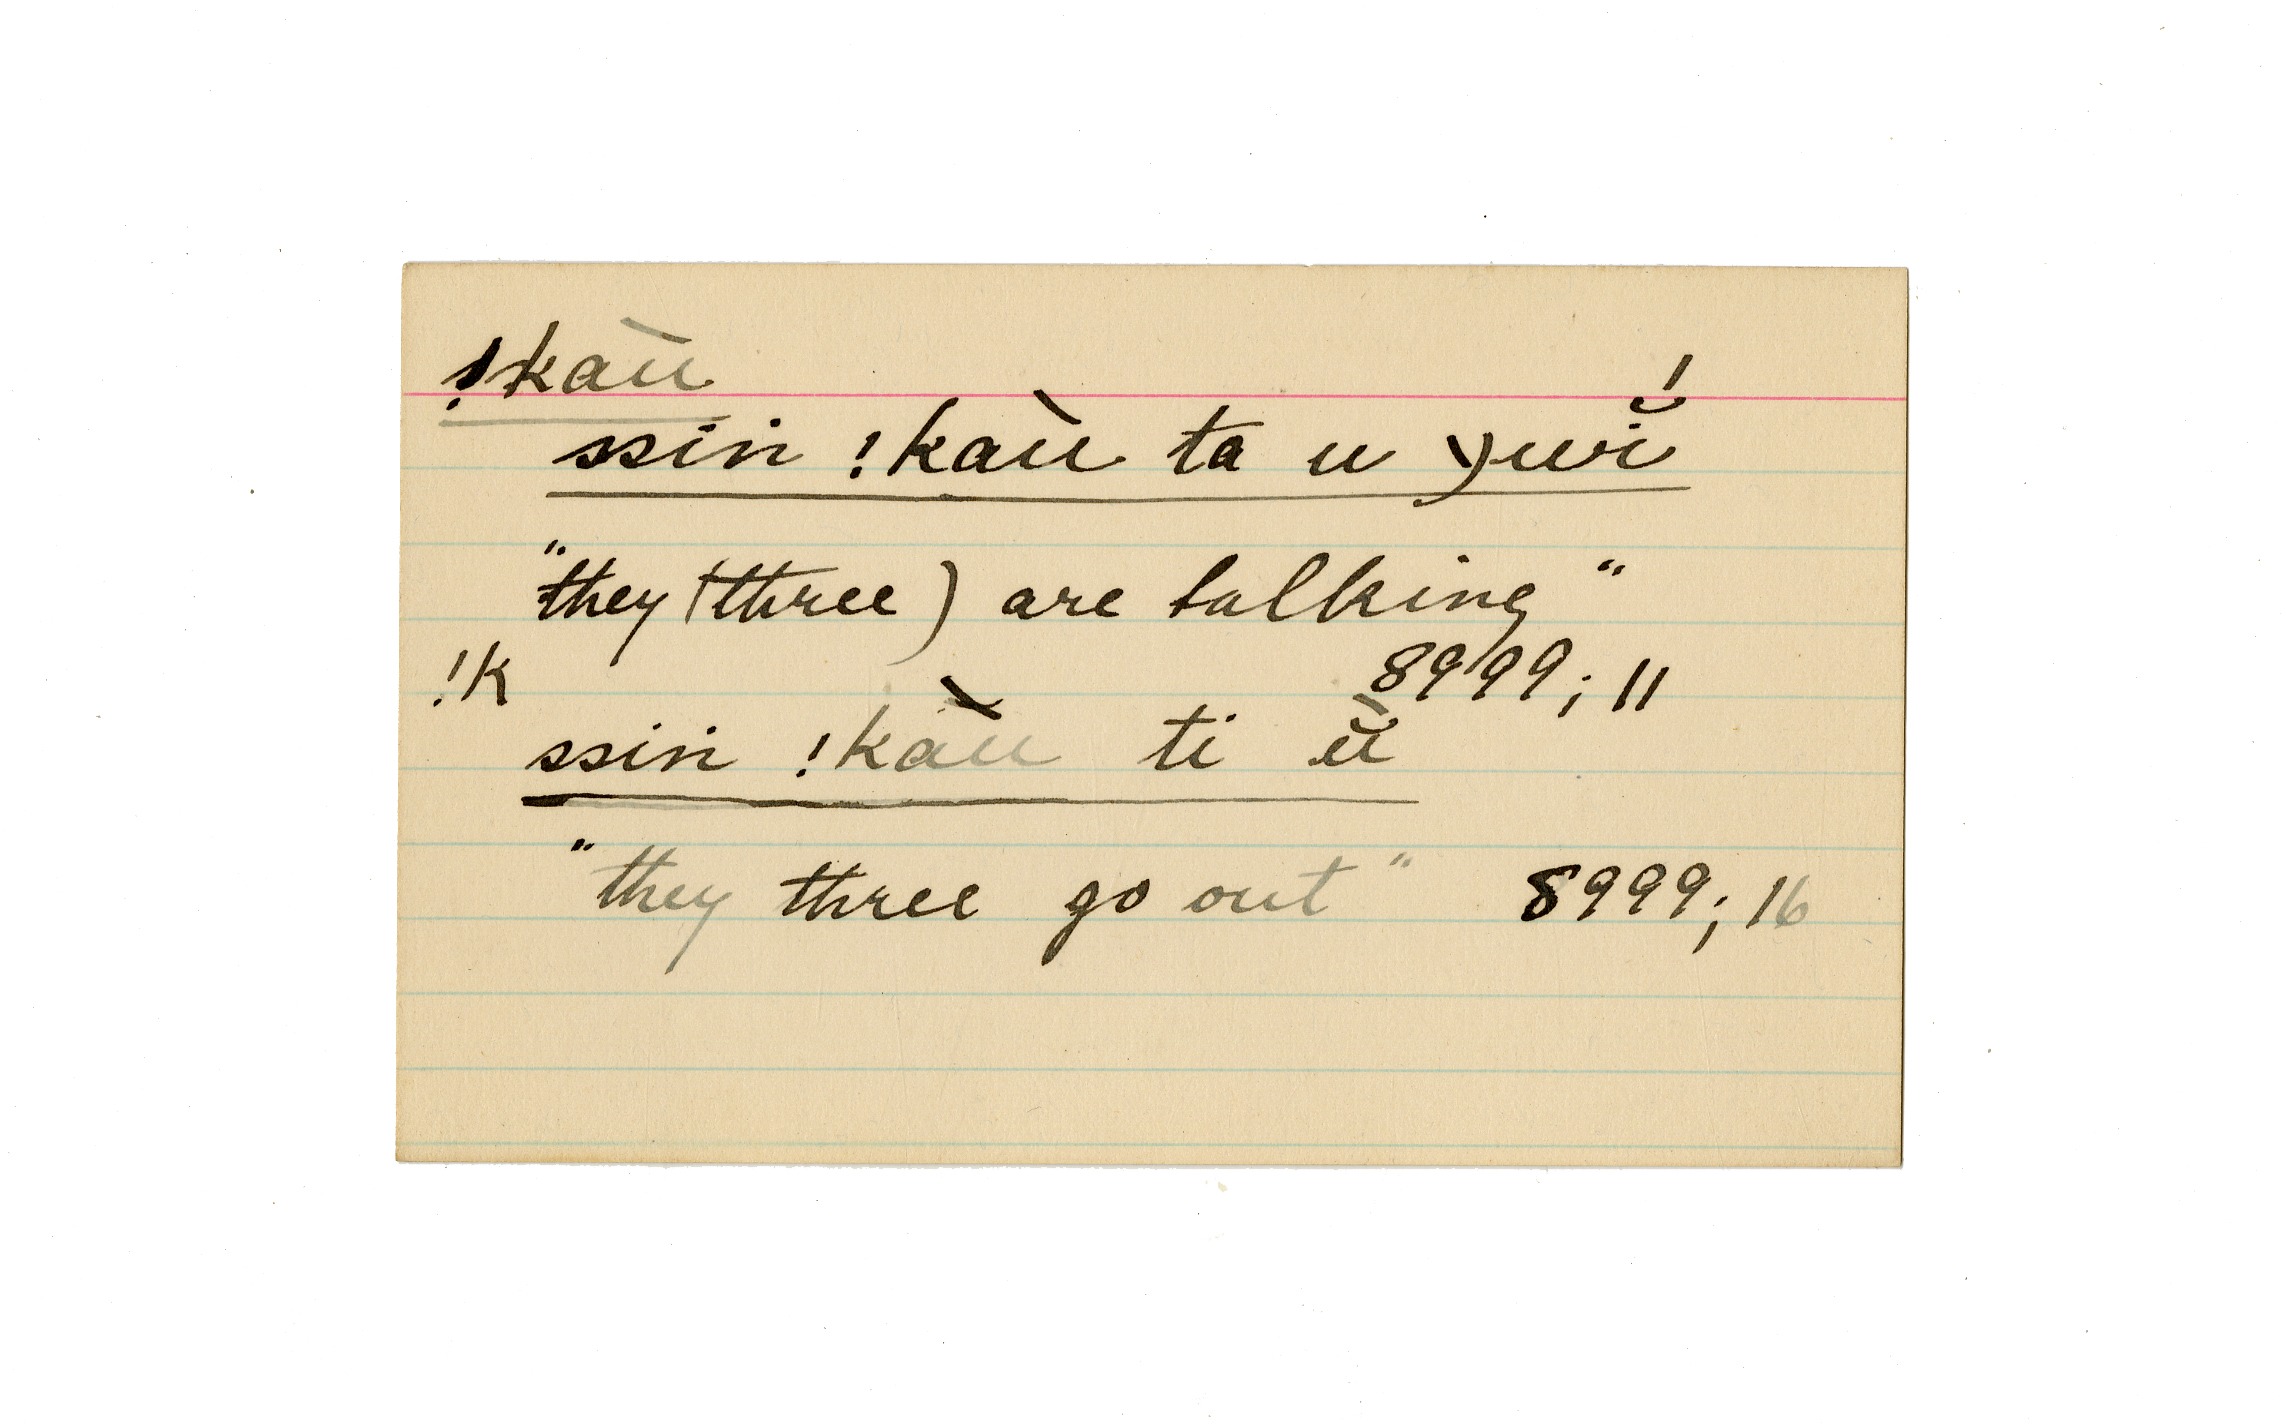 !kaù
ssin !kaù ta u ɣwĭ́
"they (three) are talking"
8999; 11
!k
ssin !kàu ti ŭ̀
"they three go out" 8999; 16